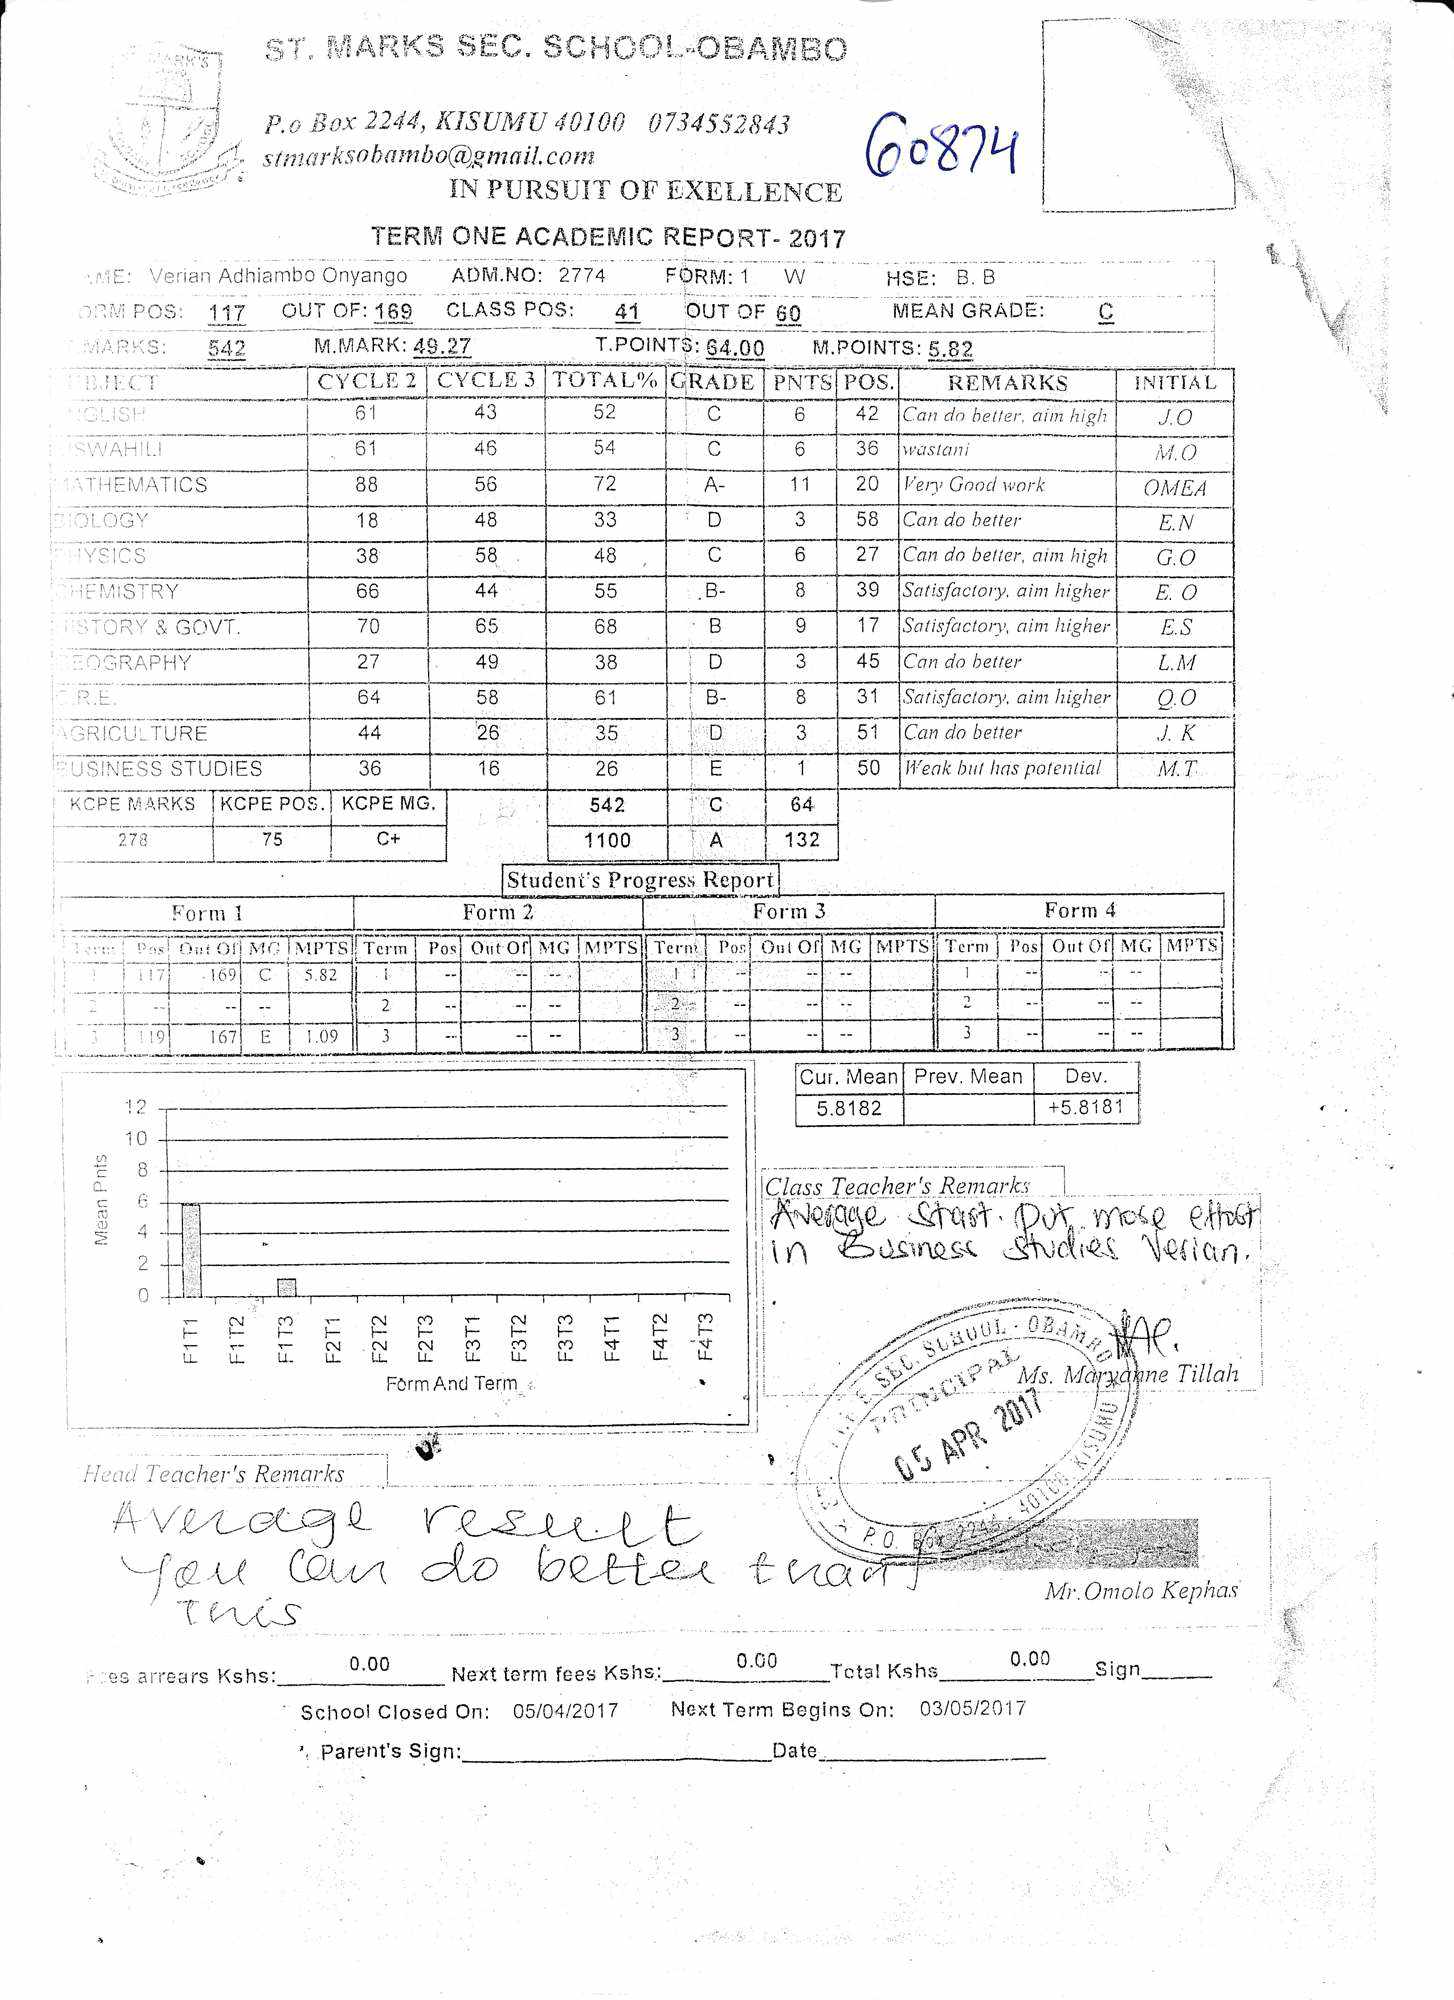 ST. MARKS SEC. SCHOOL-OBAMBO
P.o Box 2244, KISUMU 40100 0734552843
stmarksobambo@gmail.com
60874
IN PURSUIT OF EXELLENCE
TERM ONE ACADEMIC REPORT- 2017
AME: Verian Adhiambo Onyango ADM.NO: 2774 FORM: 1 W HSE: B. B
ORM POS: 117 OUT OF: 169 CLASS POS: 41 OUT OF 60 MEAN GRADE: C
MARKS: 542 M.MARK: 49.27 T.POINTS: 64.00 M.POINTS: 5.82
BJECT CYCLE 2 CYCLE 3 TOTAL% GRADE PNTS POS. REMARKS INITIAL
NGLISH 61 43 52 C 6 42 Can do better, aim high J.O
SWAHILI 61 46 54 C 6 36 wastani M.O
MATHEMATICS 88 56 72 A- 11 20 Very Good work OMEA
BIOLOGY 18 48 33 D 3 58 Can do better E.N
PHYSICS 38 58 48 C 6 27 Can do better, aim high G.O
CHEMISTRY 66 44 55 B- 8 39 Satisfactory, aim higher E. O
HISTORY & GOVT. 70 65 68 B 9 17 Satisfactory, aim higher E.S
GEOGRAPHY 27 49 38 D 3 45 Can do better L.M
C.R.E. 64 58 61 B- 8 31 Satisfactory, aim higher Q.O
AGRICULTURE 44 26 35 D 3 51 Can do better J. K
BUSINESS STUDIES 36 16 26 E 1 50 Weak but has potential M.T
KCPE MARKS KCPE POS. KCPE MG. 542 C 64
278 75 C+ 1100 A 132
Student's Progress Report
Form 1 Form 2 Form 3 Form 4
Term Pos Out Of MG MPTS Term Pos Out Of MG MPTS Term Pos Out Of MG MPTS Term Pos Out Of MG MPTS
1 117 169 C 5.82 1 -- -- -- 1 -- -- -- 1 -- -- --
2 -- -- -- 2 -- -- -- 2 -- -- -- 2 -- -- --
3 119 167 E 1.09 3 -- -- -- 3 -- -- -- 3 -- -- --
Cur. Mean Prev. Mean Dev.
5.8182 +5.8181
Mean Pnts
12
10
8
6
4
2
0
F1T1 F1T2 F1T3 F2T1 F2T2 F2T3 F3T1 F3T2 F3T3 F4T1 F4T2 F4T3
Form And Term
Class Teacher's Remarks
Average start. Put more effort
in Business studies Verian.
Ms. Maryanne Tillah
SEC. SCHOOL - OBAMBO
PRINCIPAL
05 APR 2017
P.O. Box 2244 - 40100 KISUMU
Head Teacher's Remarks
Average result
You can do better than
this
Mr. Omolo Kephas
Fees arrears Kshs: 0.00 Next term fees Kshs: 0.00 Total Kshs 0.00 Sign
School Closed On: 05/04/2017 Next Term Begins On: 03/05/2017
Parent's Sign: Date